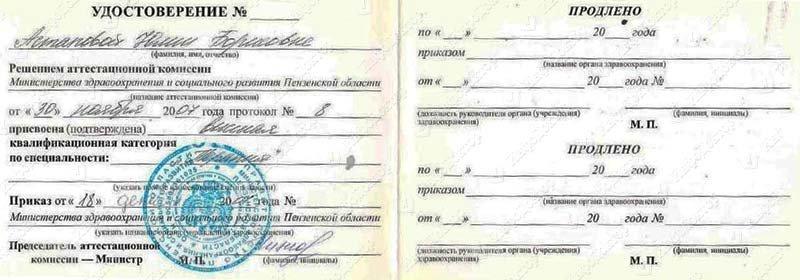 УДОСТОВЕРЕНИЕ №
Астаповой Юлии Борисовне
(фамилия, имя, отчество)
Решением аттестационной комиссии
Министерства здравоохранения и социального развития Пензенской области
(название аттестационной комиссии)
от « 30 » ноября 2007 года протокол № 8
присвоена (подтверждена) Высшая
квалификационная категория
по специальности: Терапия
Приказ от « 18 » 20
Министерства здравоохранения и социального развития Пензенской области
Председатель аттестационной
комиссии — Министр М. П. (фамилия, инициалы)
ПРОДЛЕНО
по « » 20 года
приказом
(название органа здравоохранения)
от « » 20 года №
(должность руководителя органа (учреждения) здравоохранения) (фамилия, инициалы)
М. П.
ПРОДЛЕНО
по « » 20 года
приказом
(название органа здравоохранения)
от « » 20 года №
(должность руководителя органа (учреждения) здравоохранения) (фамилия, инициалы)
М. П.